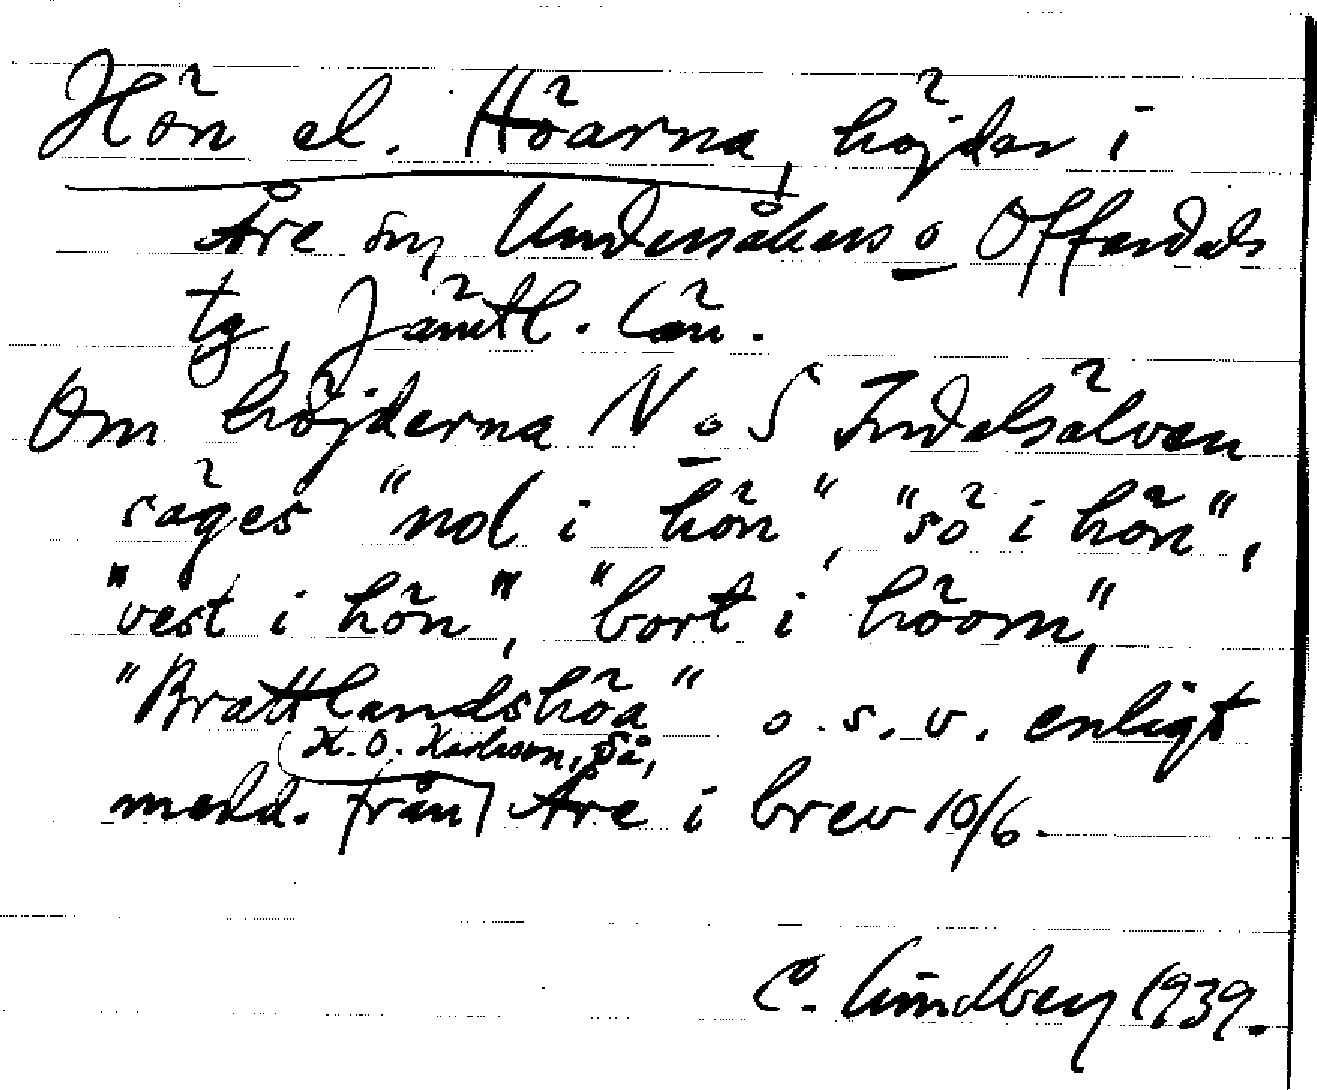 Hön el. Höarna, höjder i
Åre sn, Undersåkers o Offerdals
tg, Jämtl. län.
Om höjderna N o S Indalsälven
säges "nol i hön", "sö i hön",
"vest i hön", "bort i höom",
"Brattlandshöa" o.s.v. enligt
K. O. Karlsson, Så,
medd. från Åre i brev 10/6.
C. Lindberg 1939.